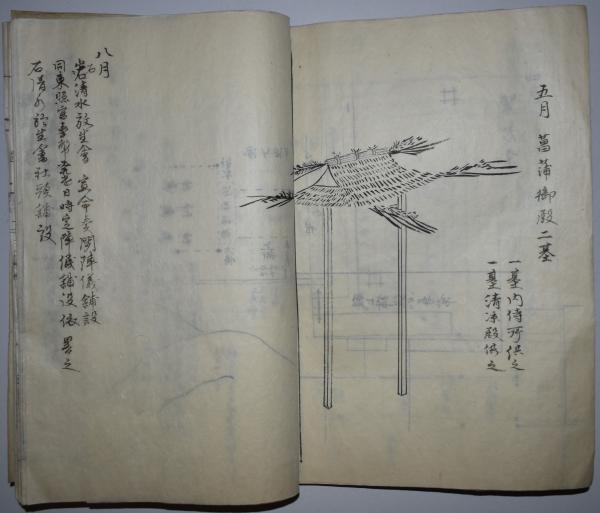 五月 菖蒲御殿二基
一基内侍所供之
一基清凉殿供之
八月
石清水放生會 宣命奏聞陣儀鋪設
同東照宮奉幣 日時定陣儀鋪設依 畧之
石清水放生會社頭鋪設